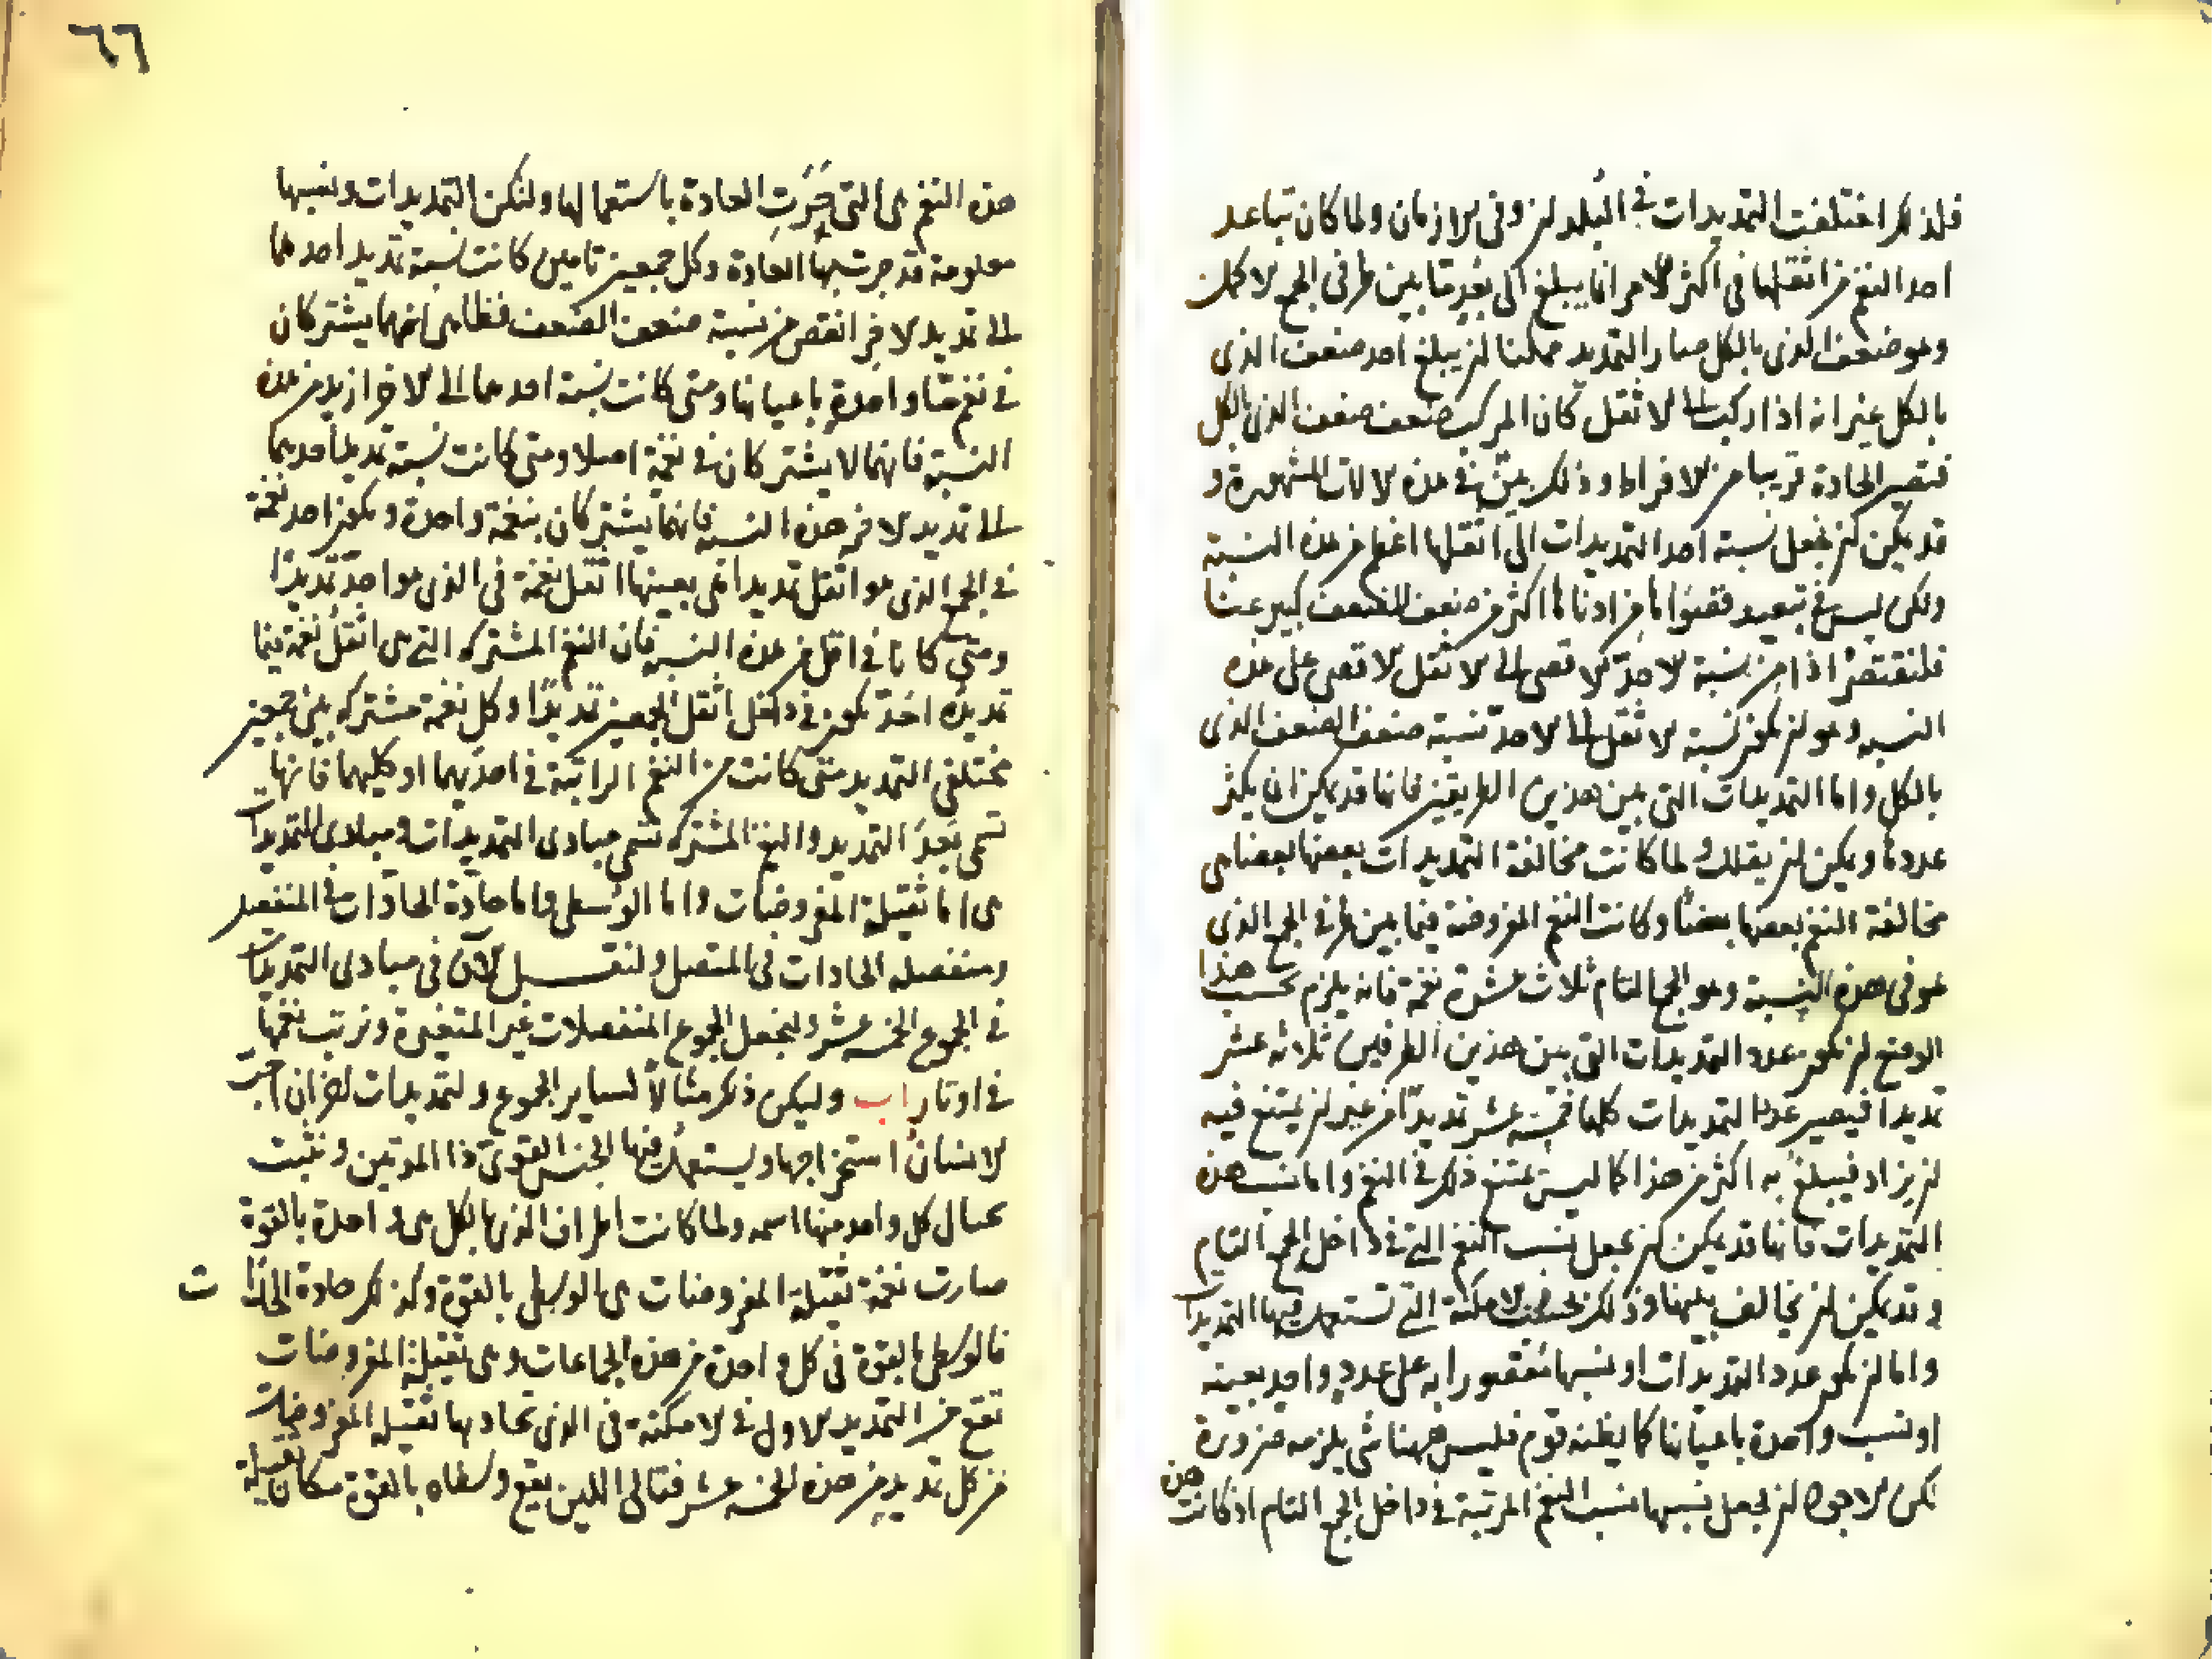 فلذلك اختلفت التمديدات في البلدان وفي الازمان ولما كان تباعد
احد النغم من اثقلها في اكثر الامر انما يبلغ الى بعد ما بين طرفي الجمع الاكمل
وهو ضعف الذي بالكل صار التمديد ممكنا ان يبلغ احد ضعف الذي
بالكل غير انه اذا ركبت الى الاثقل كان المركب ضعف ضعف الذي بالكل
فتصير الحادة قريبا من الافراط وذلك بين في هذه الالات المشهورة و
قد يمكن ان نجعل نسبة احد التمديدات الى اثقلها اعظم من هذه النسبة
ولكن ليس في تبعيد قصواها من ادناها اكثر من ضعف الضعف كبير غنا
فلنقتصر اذا من نسبة الاحد الاقصى الى الاثقل الاقصى على هذه
النسبة وهو ان تكون نسبة الاثقل الى الاحد نسبة ضعف الضعف الذي
بالكل واما التمديدات التي بين هذين الطرفين فانها قد يمكن ان يكثر
عددها ويمكن ان يقلل ولما كانت مخالفة التمديدات بعضها بعضا هي
مخالفة النغم بعضها بعضا وكانت النغم المفروضة فيما بين طرفي الجمع الذي
هو في هذه النسبة وهو الجمع التام ثلاث عشرة نغمة فانه يلزم بحسب هذا
الوضع ان يكون عدد التمديدات التي بين هذين الطرفين ثلاثه عشر
تمديدا فيصير عدد التمديدات كلها خمسة عشر تمديدا من غير ان يمتنع فيه
ان يزاد فيبلغ به اكثر من هذا كما ليس يمتنع ذلك في النغم واما نسب هذه
التمديدات فانها قد يمكن ان تجعل نسب النغم التي في داخل الجمع التام
وقد يمكن ان يخالف بينها وذلك بحسب الامكنة التي تستعمل فيها التمديدات
واما ان يكون عدد التمديدات او نسبها مقصورا به على عدد واحد بعينه
او نسب واحدة باعيانها كما يظنه قوم فليس ههنا شي يلزمه ضرورة
لكن الاجود ان نجعل نسبها نسب النغم المرتبة في داخل الجمع التام اذ كانت هذه
٦٦
هذه النغم هي التي جرت العادة باستعمالها ولتكن التمديدات ونسبها
معلومة قد جرت بها العادة وكل جمعين تامين كانت نسبة تمديد احدهما
الى تمديد الاخر انقص من نسبة ضعف الضعف فظاهر انهما يشتركان
في نغم ما واحدة باعيانها ومتى كانت نسبة احدهما الى الاخر ازيد من هذه
النسبة فانهما لا يشتركان في نغمة اصلا ومتى كانت نسبة تمديد احدهما
الى تمديد الاخر هذه النسبة فانهما يشتركان بنغمة واحدة ويكون احد نغمة
في الجمع الذي هو اثقل تمديدا هي بعينها اثقل نغمة في الذي هو احد تمديدا
ومتى كانا في اقل من هذه النسبة فان النغم المشتركة التي هي اثقل نغمة فيما
تمديده احد تكون في داخل اثقل الجمعين تمديدا وكل نغمة مشتركة بين جمعين
مختلفي التمديد متى كانت من النغم الراتبة في احدهما او كليهما فانها
تسمى بعد التمديد والنغم المشتركة تسمى مبادى التمديدات ومبادى التمديدات
هي اما ثقيلة المفروضات واما الوسطى واما حادة الحادات في المنفصل
ومنفصلة الحادات في المتصل ولنقل الآن في مبادى التمديدات
في الجموع الخمسة عشر ولنجعل الجموع المنفصلات غير المتغيرة ونرتب نغمها
في اوتار ا ب وليكن ذكر مثالا لساير الجموع والتمديدات ان احب
الانسان استخراجها ويستعمل فيها الجنس القوي ذا المدتين ونثبت
بحيال كل واحد منها اسمه ولما كانت اطراف الذي بالكل هي واحدة بالقوة
صارت نغمة ثقيلة المفروضات هي الوسطى بالقوة وكذلك حادة الحادات
فالوسطى بالقوة في كل واحدة من هذه الجماعات وهي ثقيلة المفروضات
تقع من التمديد الاول في الامكنة في الذي تحاد بها ثقيلة المفروضات
من كل تمديد من هذه الخمسة عشر فتالى اللين يقع وسطاه بالقوة مكان ثقيلة